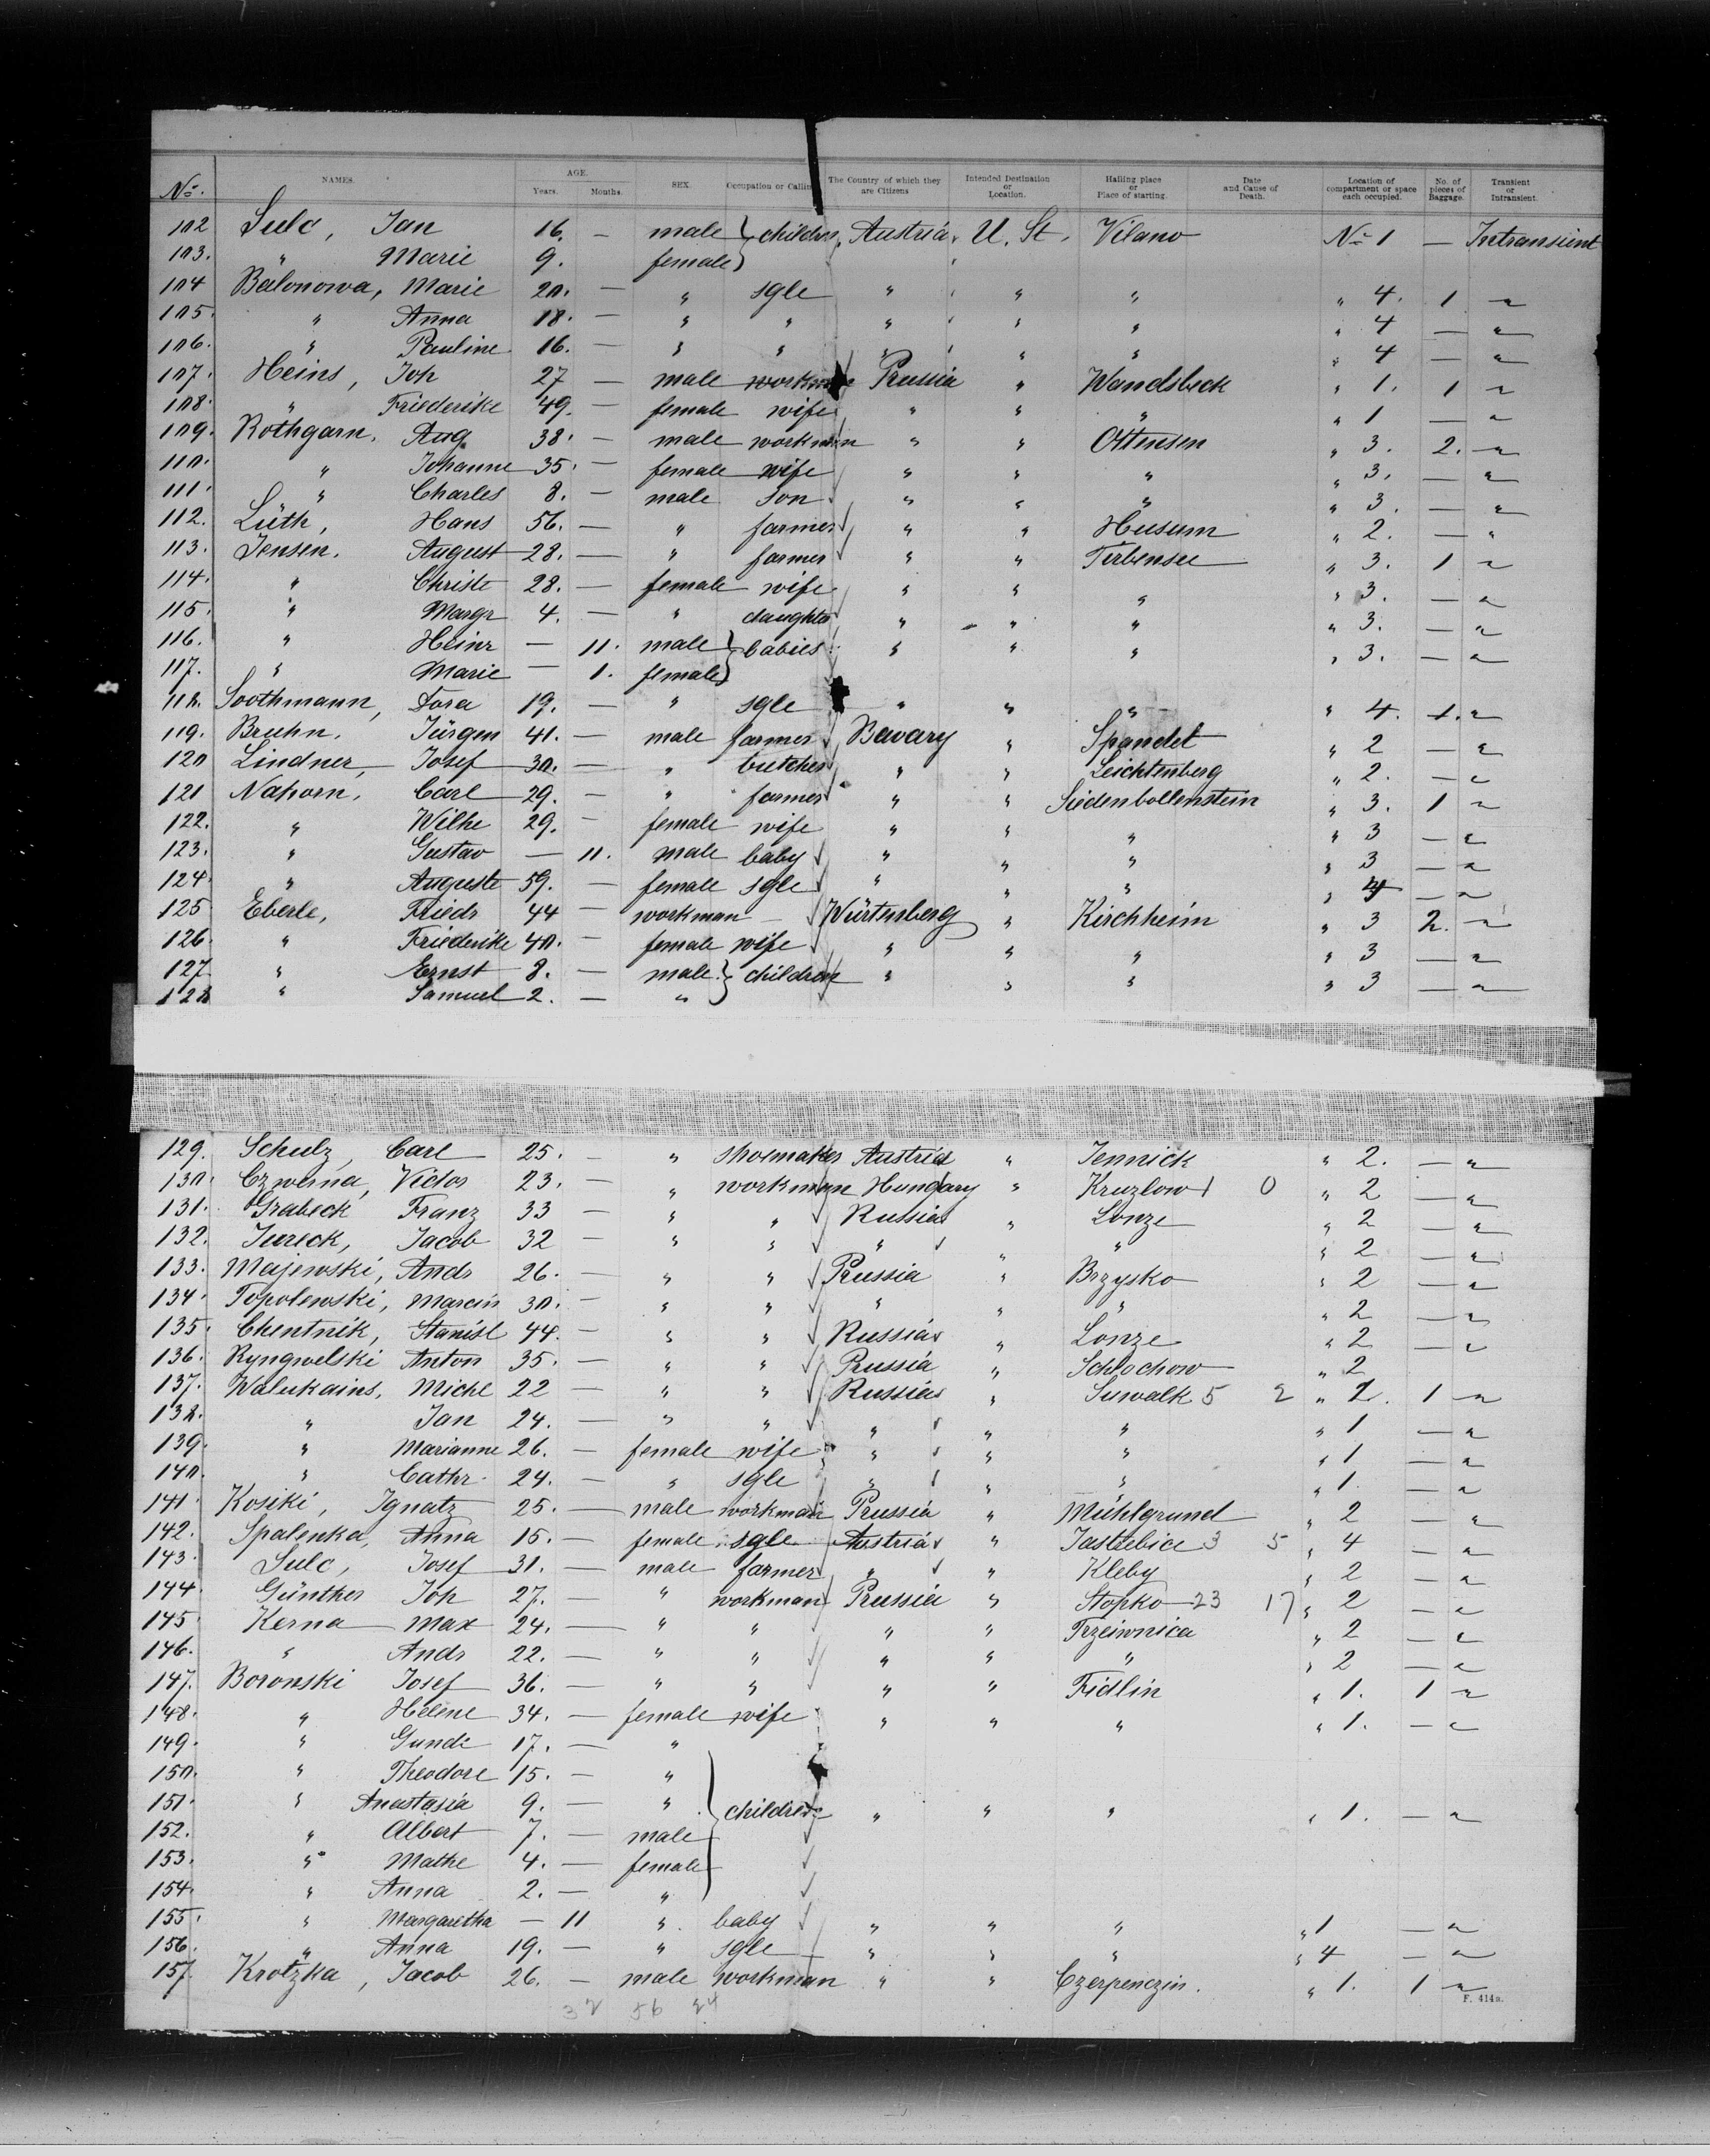 No. NAMES. AGE. Years. Months. SEX. Occupation or Callin The Country of which they are Citizens Intended Destination or Location. Hailing place or Place of starting. Date and Cause of Death. Location of compartment or space each occupied. No. of pieces of Baggage. Transient or Intransient.
102 Sulc, Jan 16. — male } children, Austria, U. St. Vilano No 1 — Intransient
103. " Marie 9. female }
104 Balonowa, Marie 20. — " sgle " " " " 4. 1 "
105. " Anna 18. — " " " " " " 4 — "
106. " Pauline 16. — " " " " " " 4 — "
107. Heins, Joh 27 — male workman Prussia " Wandsbeck " 1. 1 "
108. " Friederike 49. — female wife " " " " 1 — "
109. Rothgarn, Aug. 38. — male workman " " Ottensen " 3. 2. "
110. " Johanne 35. — female wife " " " " 3. — "
111. " Charles 8. — male son " " " " 3. — "
112. Lüth, Hans 56. — " farmer " " Husum " 2. — "
113. Jensen, August 28. — " farmer " " Tirbensee " 3. 1 "
114. " Christe 28. — female wife " " " " 3. — "
115. " Margr 4. — " daughter " " " " 3. — "
116. " Heinr — 11. male } babies " " " " 3. — "
117. " Marie — 1. female }
118. Soothmann, Dora 19. — " sgle " " " " 4. 1. "
119. Bruhn, Jürgen 41. — male farmer Bavary " Spandet " 2 — "
120 Lindner, Josef 30. — " butcher " " Leichtenberg " 2. — "
121 Nahorn, Carl 29. — " farmer " " Siedenbollenstein " 3. 1 "
122. " Wilhe 29. — female wife " " " " 3 — "
123. " Gustav — 11. male baby " " " " 3 — "
124. " Auguste 59. — female sgle " " " " 4 — "
125 Eberle, Friedr 44 — workman — Würtenberg " Kirchheim " 3 2. "
126. " Friederike 40. — female wife " " " " 3 — "
127 " Ernst 8. — male } children " " " " 3 — "
128 " Samuel 2. — " }
129. Schulz, Carl 25. — " shoemaker Austria " Jennick " 2. — "
130. Czwerna, Victor 23. — " workman Hungary " Kruzlow 1 0 " 2 — "
131. Grabeck Franz 33 — " " Russia " Lonze " 2 — "
132. Jureck, Jacob 32 — " " " " " " 2 — "
133. Majewski, Andr 26. — " " Prussia " Brzysko " 2 — "
134. Topolewski, Marcin 30. — " " " " " " 2 — "
135. Chentnik, Stanisl 44. — " " Russia " Lonze " 2 — "
136. Ryngwelski Anton 35. — " " Prussia " Schlochow " 2
137. Walukains, Michl 22 — " " Russia " Suwalk 5 2 " 2. 1 "
138. " Jan 24. — " " " " " " 1 — "
139. " Marianne 26. — female wife " " " " 1 — "
140. " Cathr. 24. — " sgle " " " " 1. — "
141. Kosiki, Ignatz 25. — male workman Prussia " Mühlgrund " 2 — "
142. Spalenka, Anna 15. — female sgle Austria " Jastzebice 3 5 " 4 — "
143. Sulc, Josef 31. — male farmer " " Kleby " 2 — "
144. Günther Joh 27. — " workman Prussia " Stopko 23 17 " 2 — "
145 Kerna Max 24. — " " " " Trzeiwnica " 2 — "
146. " Andr 22. — " " " " " " 2 — "
147. Boronski Josef 36. — " " " " Fidlin " 1. 1 "
148. " Helene 34. — female wife " " " " 1. — "
149. " Gundi 17. — "
150. " Theodore 15. — "
151. " Anastasia 9. — " } children " " " " 1. — "
152. " Albert 7. — male
153. " Mathe 4. — female
154. " Anna 2. — "
155. " Margaretha — 11 " baby " " " " 1 — "
156. " Anna 19. — " sgle " " " " 4 — "
157. Krotzka, Jacob 26. — male workman " " Czerpenczin. " 1. 1 "
32 56 24
F. 414a.